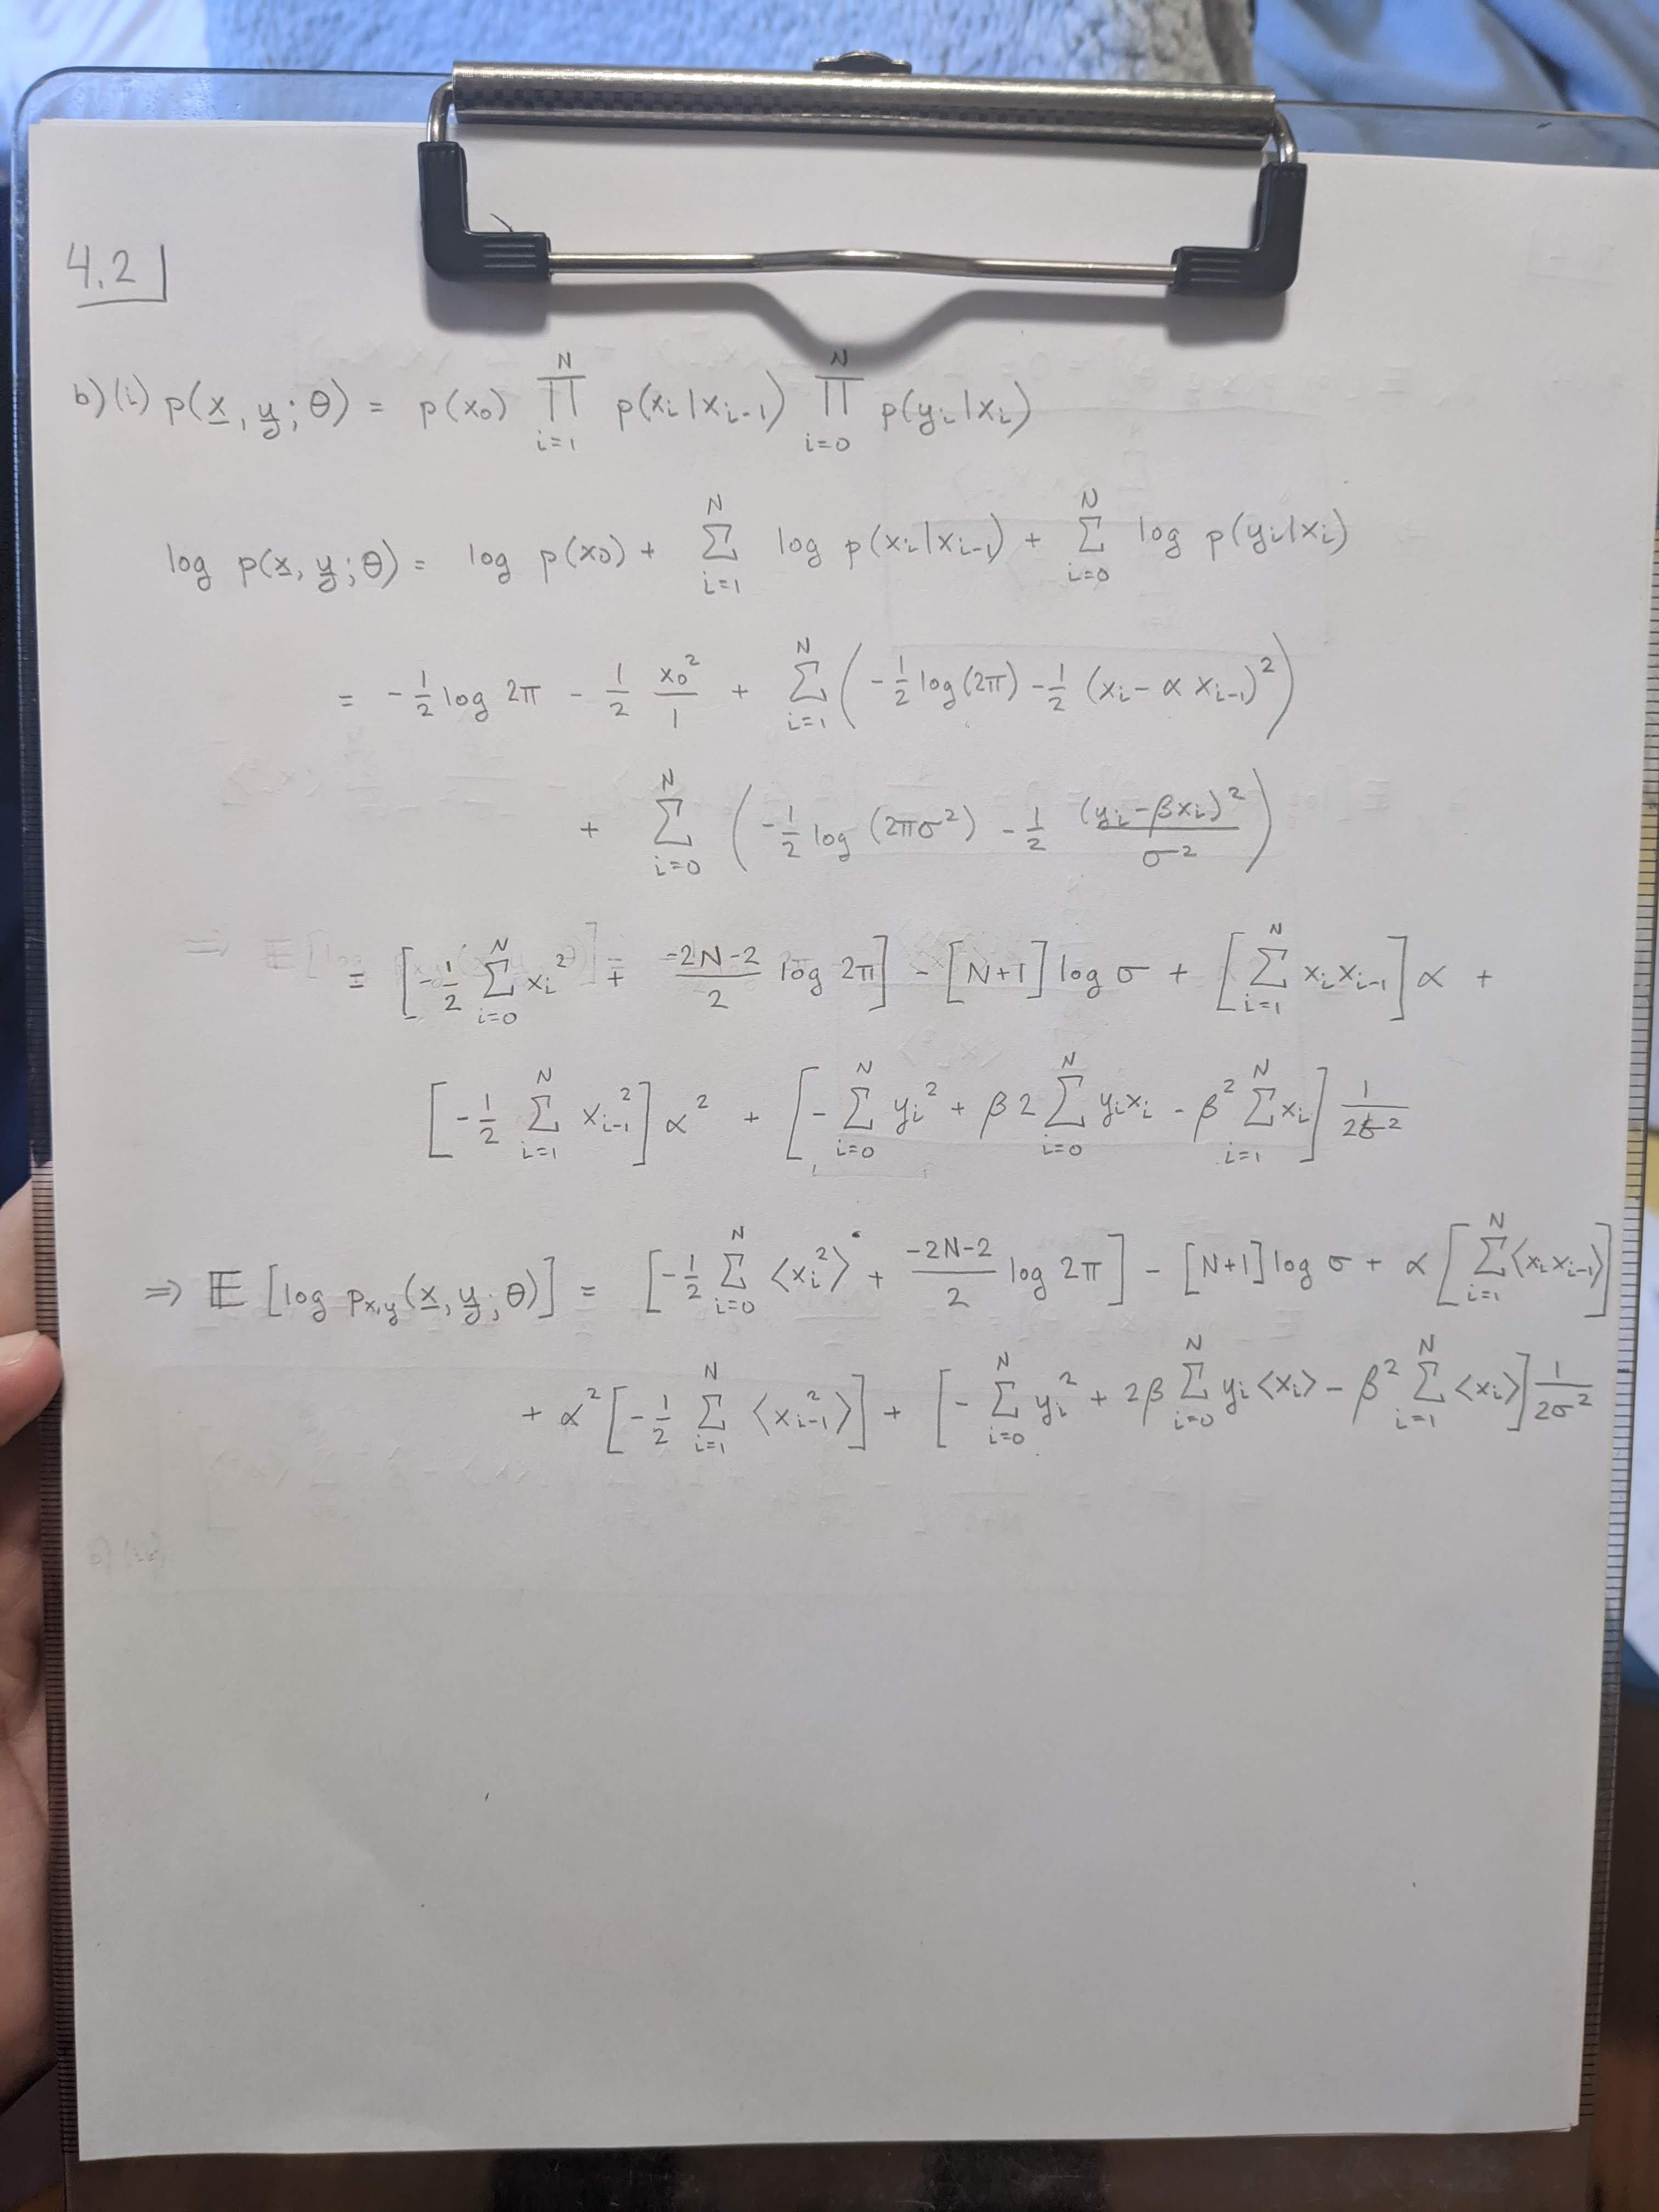 4.2
b) (i) p(x, y; θ) = p(x₀) ∏_{i=1}^{N} p(xᵢ|xᵢ₋₁) ∏_{i=0}^{N} p(yᵢ|xᵢ)
log p(x, y; θ) = log p(x₀) + Σ_{i=1}^{N} log p(xᵢ|xᵢ₋₁) + Σ_{i=0}^{N} log p(yᵢ|xᵢ)
= -1/2 log 2π - 1/2 x₀²/1 + Σ_{i=1}^{N} (-1/2 log(2π) - 1/2 (xᵢ - α xᵢ₋₁)²)
+ Σ_{i=0}^{N} (-1/2 log (2πσ²) - 1/2 (yᵢ - βxᵢ)²/σ²)
= [-1/2 Σ_{i=0}^{N} xᵢ² + (-2N-2)/2 log 2π] - [N+1] log σ + [Σ_{i=1}^{N} xᵢxᵢ₋₁] α +
[-1/2 Σ_{i=1}^{N} xᵢ₋₁²] α² + [-Σ_{i=0}^{N} yᵢ² + β2 Σ_{i=0}^{N} yᵢxᵢ - β² Σ_{i=1}^{N} xᵢ] 1/2σ²
⇒ 𝔼 [log p_{x,y}(x, y; θ)] = [-1/2 Σ_{i=0}^{N} ⟨xᵢ²⟩ + (-2N-2)/2 log 2π] - [N+1] log σ + α [Σ_{i=1}^{N} ⟨xᵢxᵢ₋₁⟩]
+ α² [-1/2 Σ_{i=1}^{N} ⟨xᵢ₋₁²⟩] + [-Σ_{i=0}^{N} yᵢ² + 2β Σ_{i=0}^{N} yᵢ⟨xᵢ⟩ - β² Σ_{i=1}^{N} ⟨xᵢ⟩] 1/2σ²